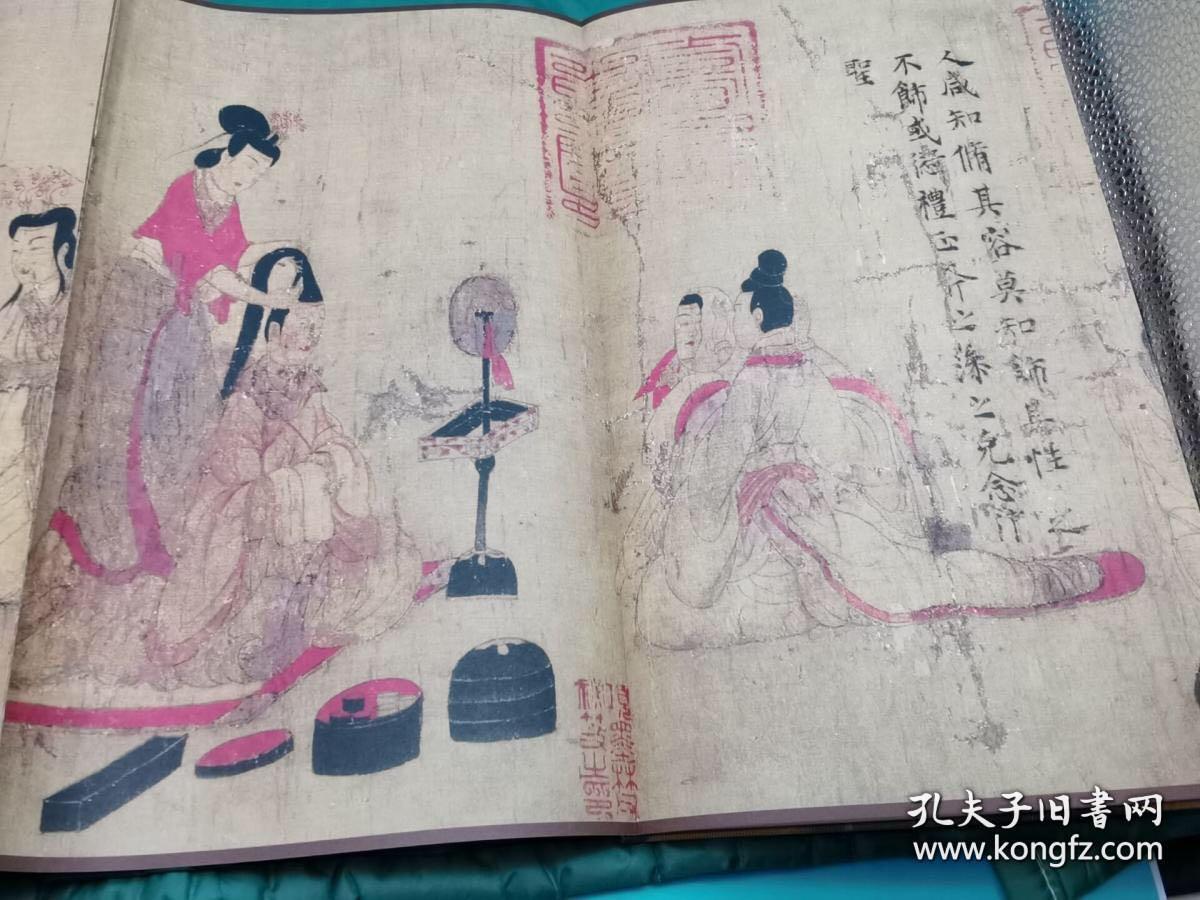 人咸知脩其容莫知飾其性之
不飾或愆禮正斧之藻之克念作
聖
孔夫子旧书网
www.kongfz.com